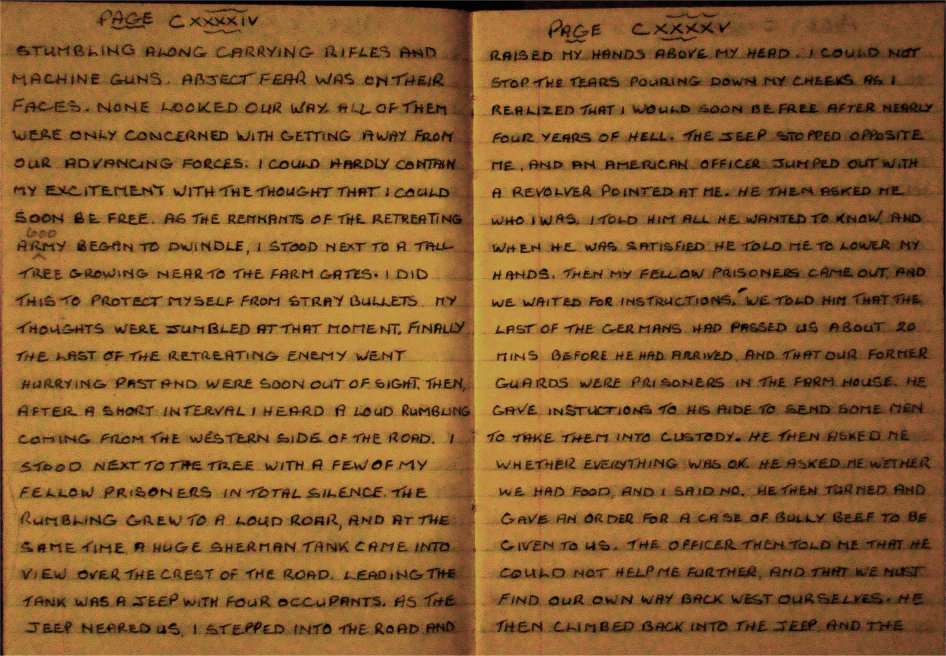 PAGE CXXXXIV
STUMBLING ALONG CARRYING RIFLES AND
MACHINE GUNS. ABJECT FEAR WAS ON THEIR
FACES. NONE LOOKED OUR WAY. ALL OF THEM
WERE ONLY CONCERNED WITH GETTING AWAY FROM
OUR ADVANCING FORCES. I COULD HARDLY CONTAIN
MY EXCITEMENT WITH THE THOUGHT THAT I COULD
SOON BE FREE. AS THE REMNANTS OF THE RETREATING
ARMY BEGAN TO DWINDLE, I STOOD NEXT TO A TALL
TREE GROWING NEAR TO THE FARM GATES. I DID
THIS TO PROTECT MYSELF FROM STRAY BULLETS. MY
THOUGHTS WERE JUMBLED AT THAT MOMENT. FINALLY
THE LAST OF THE RETREATING ENEMY WENT
HURRYING PAST AND WERE SOON OUT OF SIGHT. THEN,
AFTER A SHORT INTERVAL I HEARD A LOUD RUMBLING
COMING FROM THE WESTERN SIDE OF THE ROAD. I
STOOD NEXT TO THE TREE WITH A FEW OF MY
FELLOW PRISONERS IN TOTAL SILENCE. THE
RUMBLING GREW TO A LOUD ROAR, AND AT THE
SAME TIME A HUGE SHERMAN TANK CAME INTO
VIEW OVER THE CREST OF THE ROAD. LEADING THE
TANK WAS A JEEP WITH FOUR OCCUPANTS. AS THE
JEEP NEARED US, I STEPPED INTO THE ROAD AND
PAGE CXXXXV
RAISED MY HANDS ABOVE MY HEAD. I COULD NOT
STOP THE TEARS POURING DOWN MY CHEEKS AS I
REALIZED THAT I WOULD SOON BE FREE AFTER NEARLY
FOUR YEARS OF HELL. THE JEEP STOPPED OPPOSITE
ME, AND AN AMERICAN OFFICER JUMPED OUT WITH
A REVOLVER POINTED AT ME. HE THEN ASKED ME
WHO I WAS. I TOLD HIM ALL HE WANTED TO KNOW, AND
WHEN HE WAS SATISFIED HE TOLD ME TO LOWER MY
HANDS. THEN MY FELLOW PRISONERS CAME OUT, AND
WE WAITED FOR INSTRUCTIONS. WE TOLD HIM THAT THE
LAST OF THE GERMANS HAD PASSED US ABOUT 20
MINS BEFORE HE HAD ARRIVED, AND THAT OUR FORMER
GUARDS WERE PRISONERS IN THE FARM HOUSE. HE
GAVE INSTUCTIONS TO HIS AIDE TO SEND SOME MEN
TO TAKE THEM INTO CUSTODY. HE THEN ASKED ME
WHETHER EVERYTHING WAS OK. HE ASKED ME WETHER
WE HAD FOOD, AND I SAID NO. HE THEN TURNED AND
GAVE AN ORDER FOR A CASE OF BULLY BEEF TO BE
GIVEN TO US. THE OFFICER THEN TOLD ME THAT HE
COULD NOT HELP ME FURTHER, AND THAT WE MUST
FIND OUR OWN WAY BACK WEST OURSELVES. HE
THEN CLIMBED BACK INTO THE JEEP, AND THE